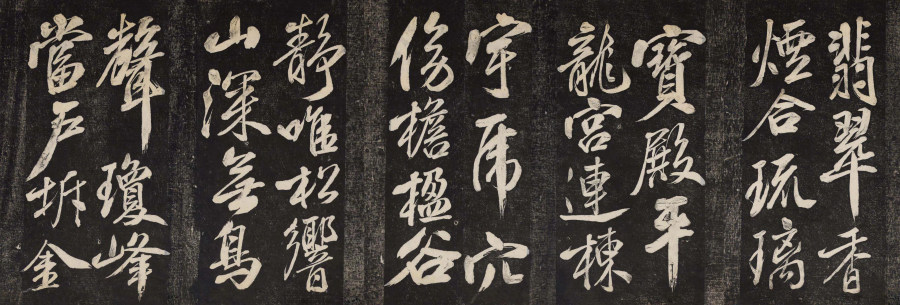 翡翠香
煙合琉璃
寶殿平
龍宮連棟
宇虎穴
傍檐楹谷
靜唯松響
山深無鳥
聲瓊峰
當戶拆金